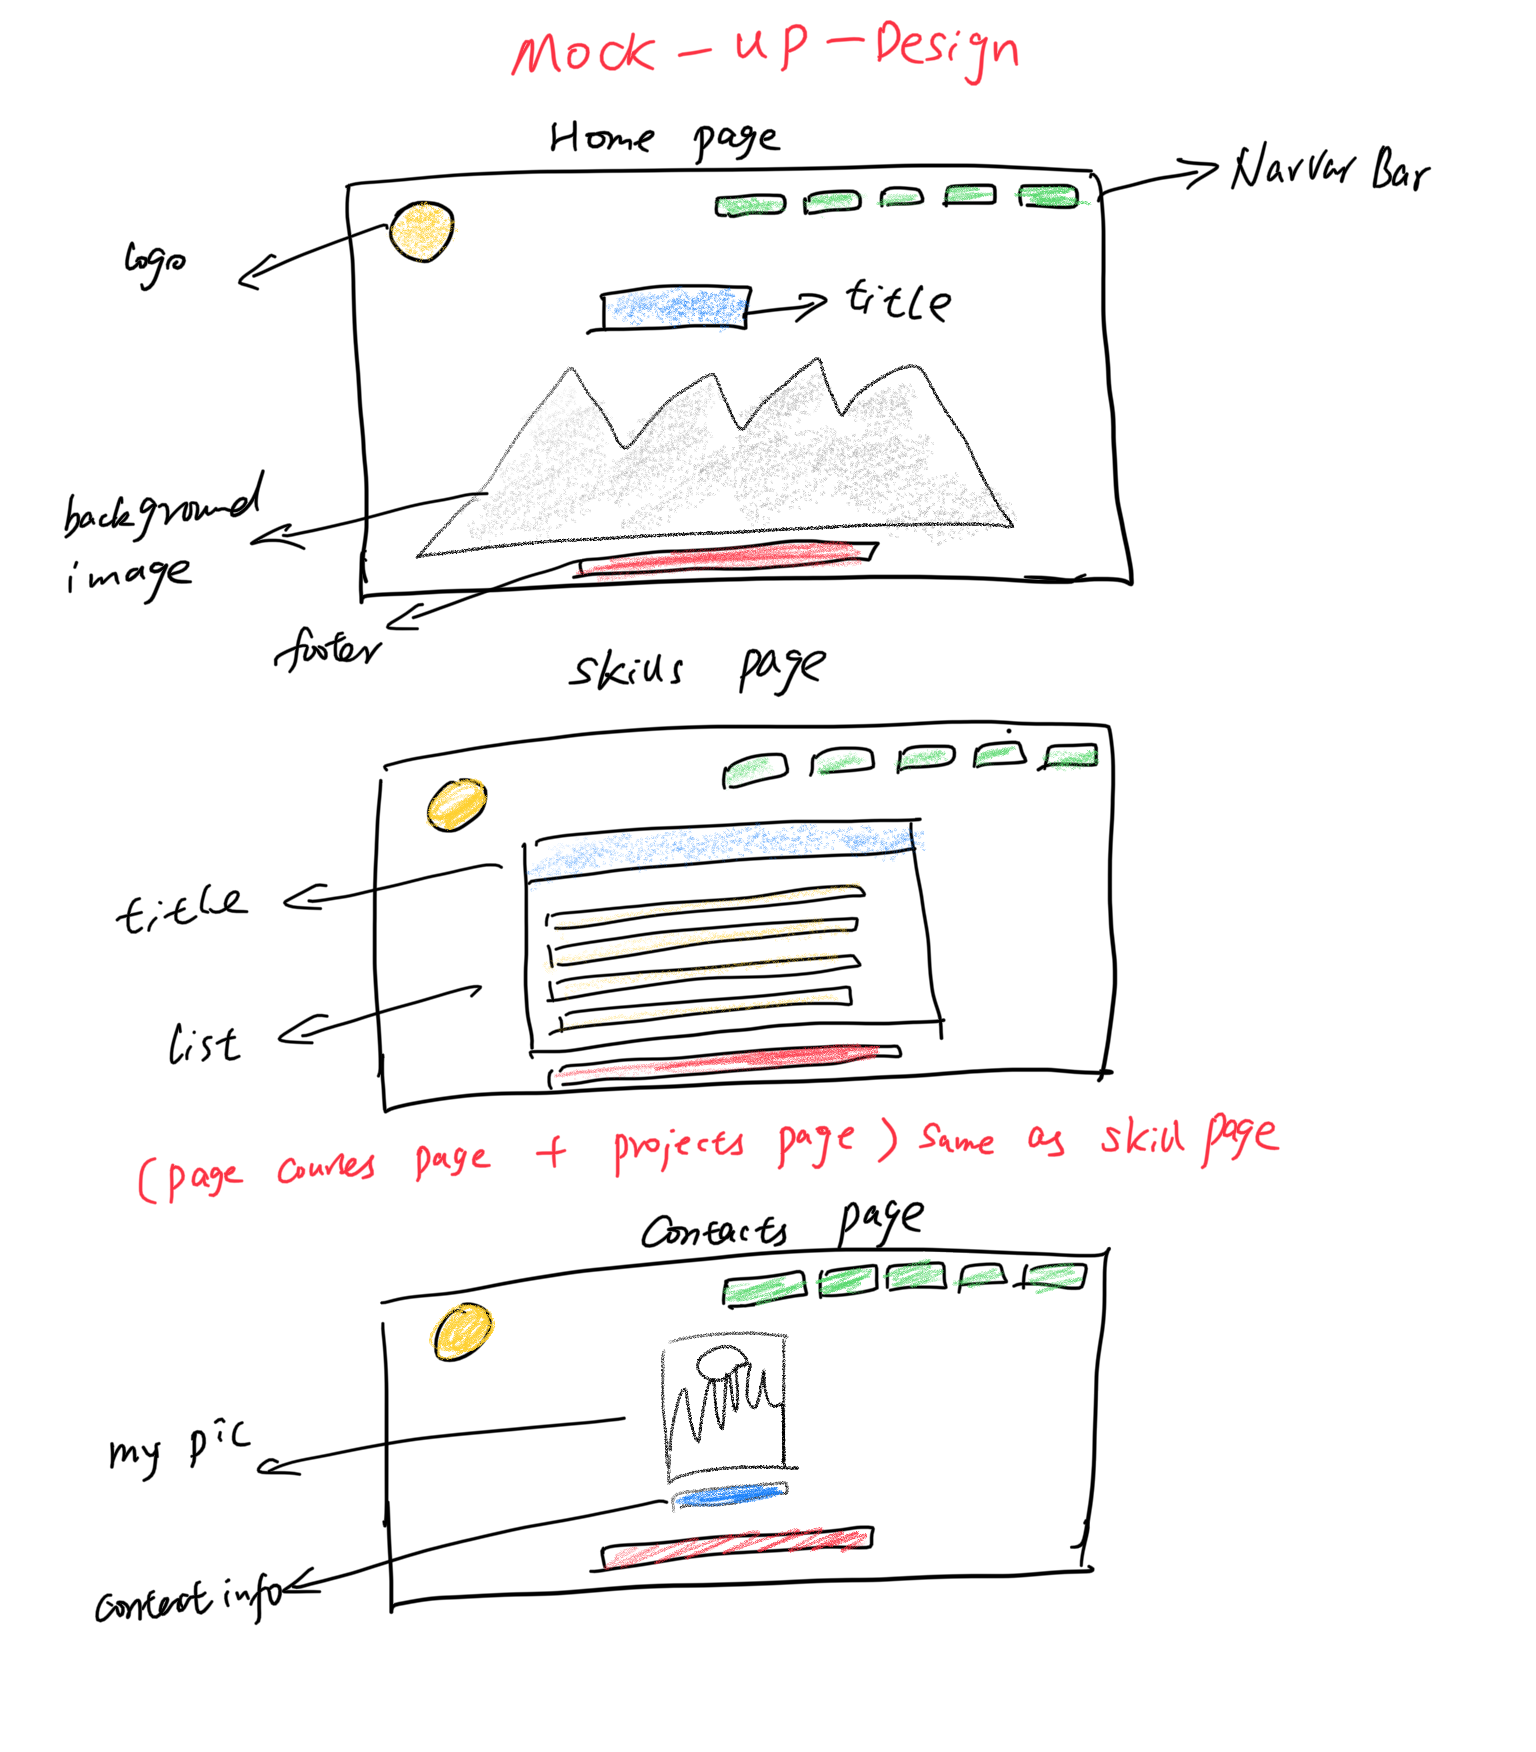 Mock - up - Design
Home page
Narvar Bar
logo
title
background
image
footer
Skills page
title
list
(page courses page + projects page) same as skill page
Contacts page
my pic
contact info